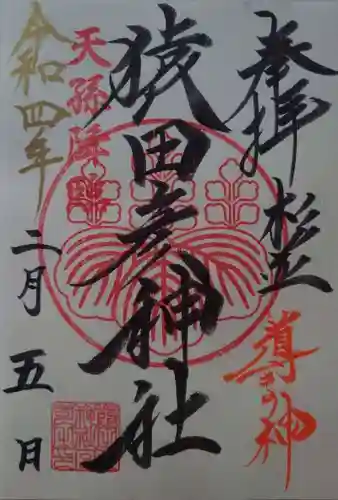 奉拝
杉並
導きの神
猿田彦神社
天孫降臨
令和四年
二月
五日